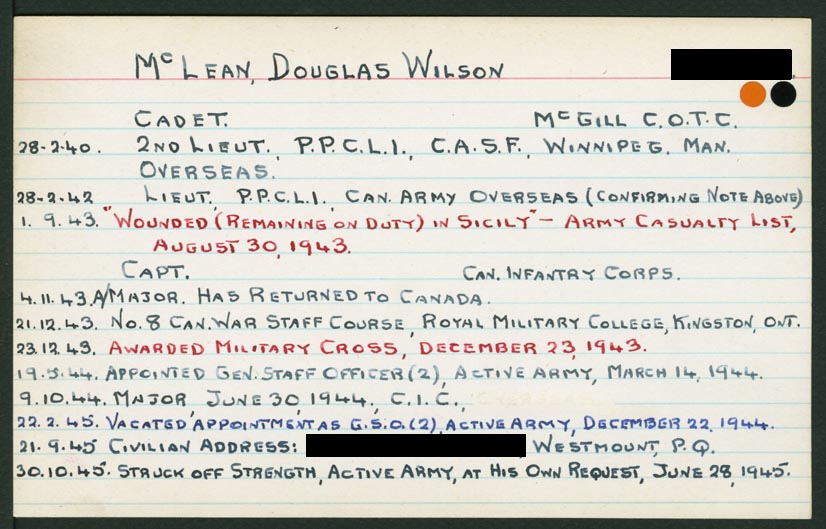 McLEAN, DOUGLAS WILSON
CADET. McGILL C.O.T.C.
28-2-40. 2ND LIEUT., P.P.C.L.I., C.A.S.F., WINNIPEG, MAN.
OVERSEAS.
28-2-42 LIEUT., P.P.C.L.I., CAN. ARMY OVERSEAS (CONFIRMING NOTE ABOVE)
1. 9. 43. "WOUNDED (REMAINING ON DUTY) IN SICILY" - ARMY CASUALTY LIST,
AUGUST 30, 1943.
CAPT. CAN. INFANTRY CORPS.
4.11.43. A/MAJOR. HAS RETURNED TO CANADA.
21.12.43. NO. 8 CAN. WAR STAFF COURSE, ROYAL MILITARY COLLEGE, KINGSTON, ONT.
23.12.43. AWARDED MILITARY CROSS, DECEMBER 23, 1943.
19.5.44. APPOINTED GEN. STAFF OFFICER (2), ACTIVE ARMY, MARCH 14, 1944.
9.10.44. MAJOR, JUNE 30, 1944, C.I.C.,
22.2.45. VACATED APPOINTMENT AS G.S.O.(2), ACTIVE ARMY, DECEMBER 22, 1944.
21.9.45 CIVILIAN ADDRESS: WESTMOUNT, P.Q.
30.10.45. STRUCK OFF STRENGTH, ACTIVE ARMY, AT HIS OWN REQUEST, JUNE 28, 1945.